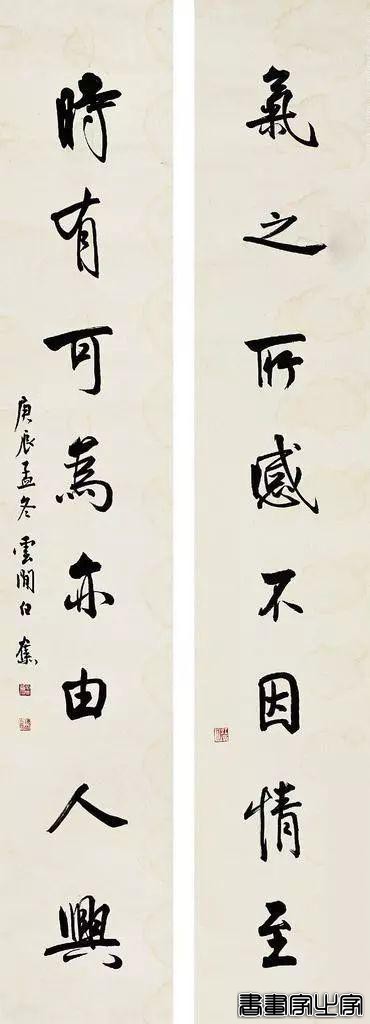 氣之所感不因情至
時有可為亦由人興
庚辰孟冬雲間白蕉
書畫家出字